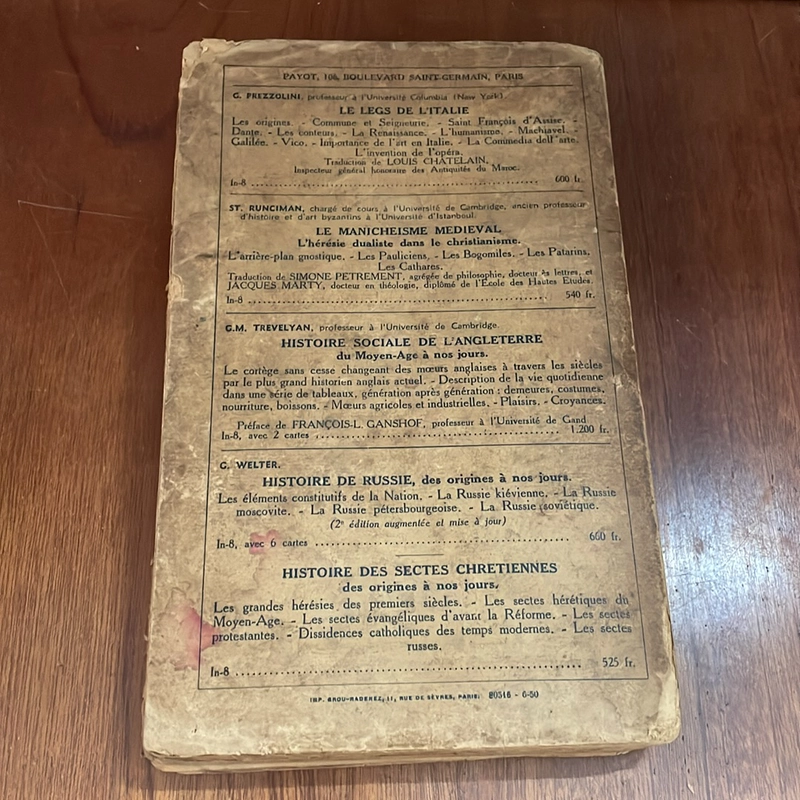 PAYOT, 106, BOULEVARD SAINT-GERMAIN, PARIS
G. PREZZOLINI, professeur à l'Université Columbia (New York)
LE LEGS DE L'ITALIE
Les origines. - Commune et Seigneurie. - Saint François d'Assise. -
Dante. - Les conteurs. - La Renaissance. - L'humanisme. - Machiavel. -
Galilée. - Vico. - Importance de l'art en Italie. - La Commedia dell'arte.
L'invention de l'opéra.
Traduction de LOUIS CHATELAIN,
Inspecteur général honoraire des Antiquités du Maroc.
In-8 ........ 600 fr.
ST. RUNCIMAN, chargé de cours à l'Université de Cambridge, ancien professeur
d'histoire et d'art byzantins à l'Université d'Istanboul.
LE MANICHEISME MEDIEVAL
L'hérésie dualiste dans le christianisme.
L'arrière-plan gnostique. - Les Pauliciens. - Les Bogomiles. - Les Patarins.
Les Cathares.
Traduction de SIMONE PETREMENT, agrégée de philosophie, docteur ès lettres, et
JACQUES MARTY, docteur en théologie, diplômé de l'École des Hautes Etudes.
In-8 ........ 540 fr.
G.M. TREVELYAN, professeur à l'Université de Cambridge.
HISTOIRE SOCIALE DE L'ANGLETERRE
du Moyen-Age à nos jours.
Le cortège sans cesse changeant des mœurs anglaises à travers les siècles
par le plus grand historien anglais actuel. - Description de la vie quotidienne
dans une série de tableaux, génération après génération : demeures, costumes,
nourriture, boissons. - Mœurs agricoles et industrielles. - Plaisirs. - Croyances.
Préface de FRANÇOIS-L. GANSHOF, professeur à l'Université de Gand
In-8, avec 2 cartes ........ 1.200 fr.
G. WELTER.
HISTOIRE DE RUSSIE, des origines à nos jours.
Les éléments constitutifs de la Nation. - La Russie kiévienne. - La Russie
moscovite. - La Russie pétersbourgeoise. - La Russie soviétique.
(2e édition augmentée et mise à jour)
In-8, avec 6 cartes ........ 660 fr.
HISTOIRE DES SECTES CHRETIENNES
des origines à nos jours.
Les grandes hérésies des premiers siècles. - Les sectes hérétiques du
Moyen-Age. - Les sectes évangéliques d'avant la Réforme. - Les sectes
protestantes. - Dissidences catholiques des temps modernes. - Les sectes
russes.
In-8 ........ 525 fr.
IMP. BROU-RADEREZ, 11, RUE DE SÈVRES, PARIS. 80316 - 6-50